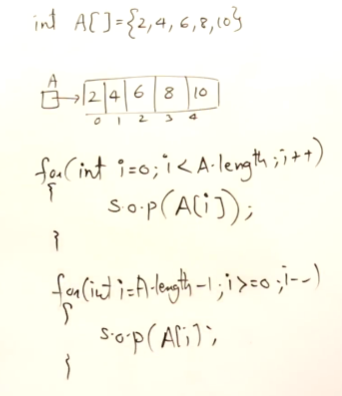 int A[]={2,4,6,8,10}
A
2 4 6 8 10
0 1 2 3 4
for(int i=0;i<A.length;i++)
{
s.o.p(A[i]);
}
for(int i=A.length-1;i>=0;i--)
{
s.o.p(A[i];
}